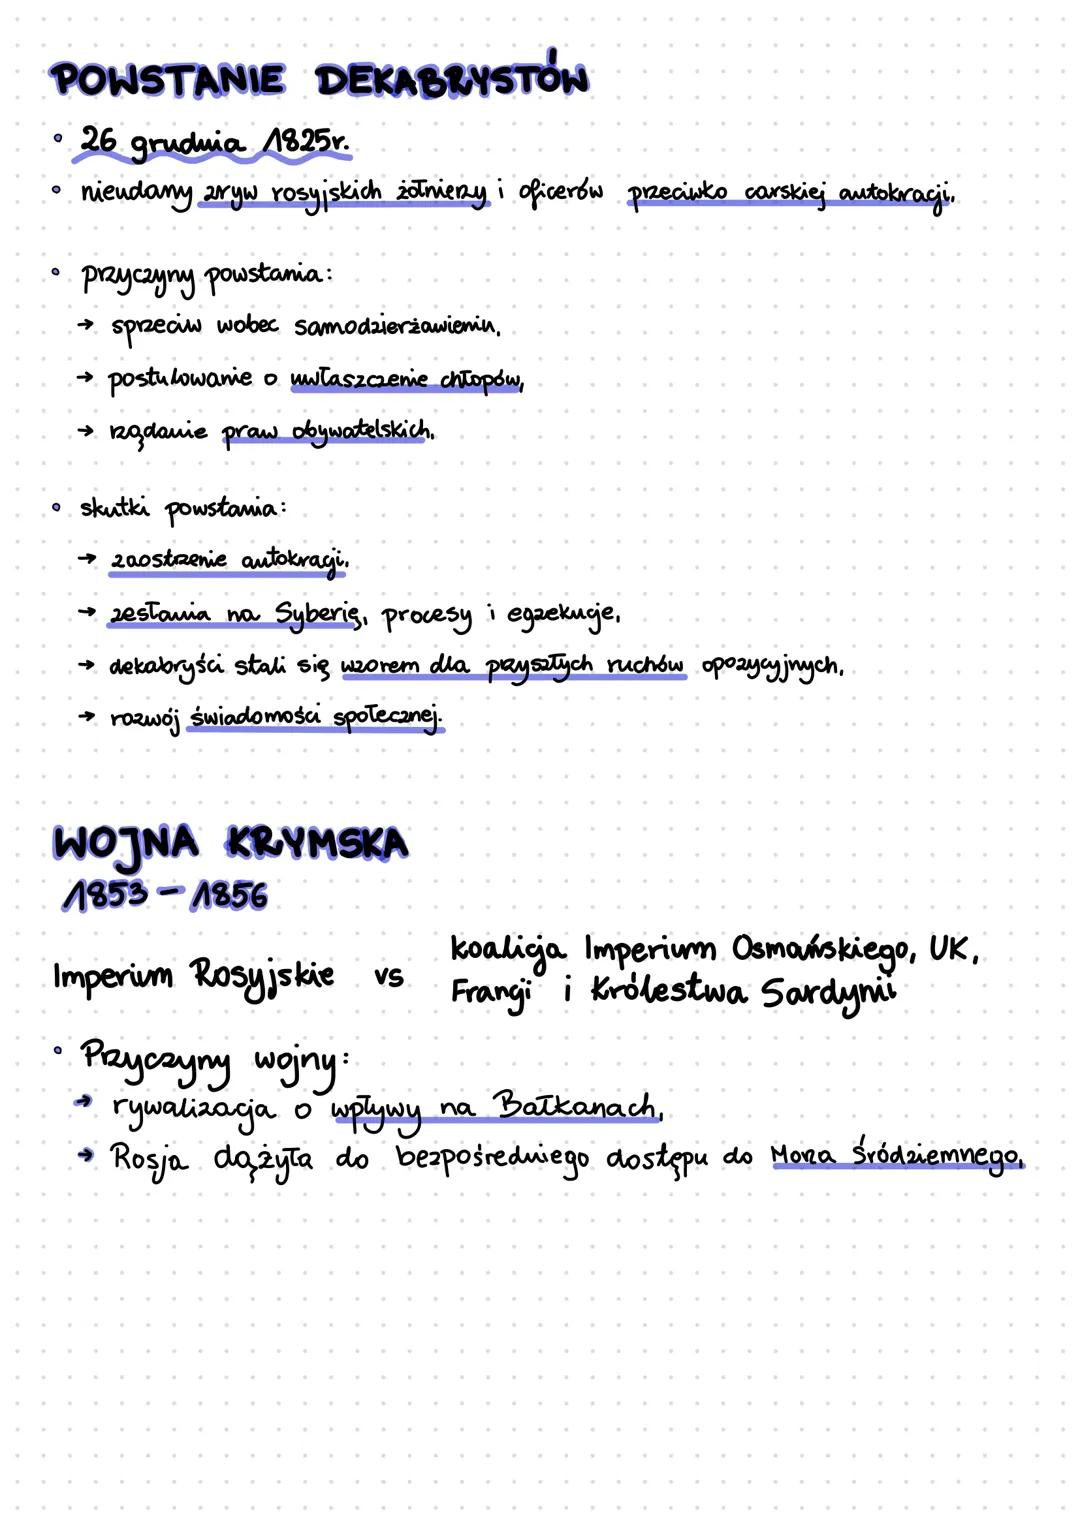 POWSTANIE DEKABRYSTÓW
• 26 grudnia 1825r.
• nieudany zryw rosyjskich żołnierzy i oficerów przeciwko carskiej autokracji,
• przyczyny powstania:
→ sprzeciw wobec samodzierżawieniu,
→ postulowanie o uwłaszczenie chłopów,
→ rządanie praw obywatelskich,
• skutki powstania:
→ zaostrzenie autokracji,
→ zesłania na Syberię, procesy i egzekucje,
→ dekabryści stali się wzorem dla przyszłych ruchów opozycyjnych,
→ rozwój świadomości społecznej.
WOJNA KRYMSKA
1853 - 1856
Imperium Rosyjskie vs koalicja Imperium Osmańskiego, UK,
Francji i Królestwa Sardynii
• Przyczyny wojny:
→ rywalizacja o wpływy na Bałkanach,
→ Rosja dążyła do bezpośredniego dostępu do Morza Śródziemnego,